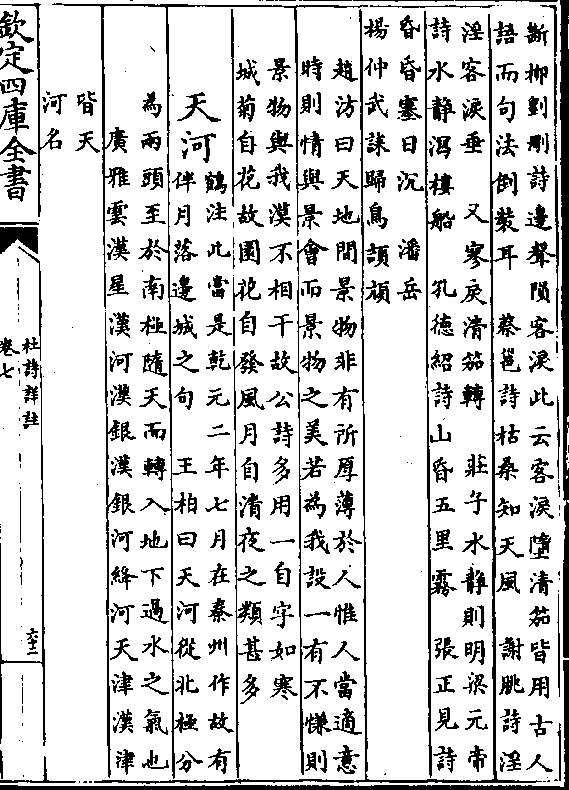 斷柳劉刪詩邊聲隕客淚此云客淚墮清笳皆用古人
語而句法倒裝耳　蔡邕詩枯桑知天風　謝朓詩淫
淫客淚垂　又寒戾清笳轉　莊子水靜則明梁元帝
詩水靜瀉樓船　孔德紹詩山昏五里霧　張正見詩
昏昏塞日沉　潘岳
楊仲武誄歸鳥頡頏
趙汸曰天地間景物非有所厚薄於人惟人當適意
時則情與景會而景物之美若為我設一有不慊則
景物與我漠不相干故公詩多用一自字如寒
城菊自花故園花自發風月自清夜之類甚多
天河
鶴注此當是乾元二年七月在秦州作故有
伴月落邊城之句　王柏曰天河從北極分
為兩頭至於南極隨天而轉入地下過水之氣也
廣雅雲漢星漢河漢銀漢銀河絳河天津漢津
皆天
河名
欽定四庫全書
杜詩詳註
卷七
六十二